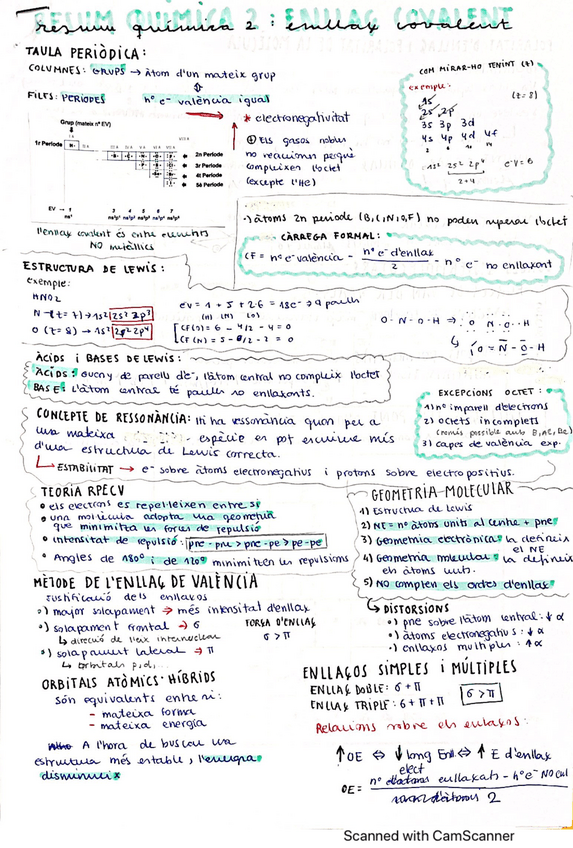 RESUM QUÍMICA 2: ENLLAÇ COVALENT
resum química 2: enllaç covalent
TAULA PERIÒDICA:
COLUMNES: GRUPS → àtom d'un mateix grup
n° e⁻ valència igual
FILES: PERIODES
* electronegativitat
⊕ Els gasos nobles
no reaccionen perquè
compleixen l'octet
(excepte l'He)
Grup (mateix nº EV)
1r Període
2n Període
3r Període
4t Període
5è Període
EV →
l'enllaç covalent és entre elements
NO metàl·lics
COM MIRAR-HO TENINT (Z)
exemple:
(Z=8)
1s
2s 2p
3s 3p 3d
4s 4p 4d 4f
1s² 2s² 2p⁴ e⁻V=6
2+4
·) àtoms 2n periode (B,C,N,O,F) no poden superar l'octet
CÀRREGA FORMAL:
CF = n° e⁻ valència - n° e⁻ d'enllaç / 2 - n° e⁻ no enllaxant
ESTRUCTURA DE LEWIS:
exemple:
HNO2
N → (Z=7) → 1s² 2s² 2p³
O (Z=8) → 1s² 2s² 2p⁴
eV = 1 + 5 + 2·6 = 18e⁻ → 9 parells
(H) (N) (O)
CF(O) = 6 - 4/2 - 4 = 0
CF(N) = 5 - 6/2 - 2 = 0
O·N·O·H ⇒
ÀCIDS i BASES DE LEWIS:
ÀCIDS: bucny de parells d'e⁻, l'àtom central no compleix l'octet
BASE: l'àtom central té parells no enllaxants.
EXCEPCIONS OCTET:
1) n° imparell d'electrons
2) octets incomplets
(només possible amb B, Al, Be)
3) capes de valència exp.
CONCEPTE DE RESSONÀNCIA: Hi ha ressonància quan per a
una mateixa espècie es pot escriure més
d'una estructura de Lewis correcta.
↳ ESTABILITAT → e⁻ sobre àtoms electronegatius i protons sobre electropositius.
TEORIA RPECV
• els electrons es repel·leixen entre si
• una molècula adopta una geometria
que minimitza les forces de repulsió
• Intensitat de repulsió: pne - pne > pne - pe > pe - pe
• Angles de 180° i de 120° minimitzen les repulsions
GEOMETRIA MOLECULAR
1) Estructura de Lewis
2) NE = n° àtoms units al centre + pne
3) Geometria electrònica: la defineix
el NE
4) Geometria molecular: la defineix
els àtoms units.
5) NO compten els ordres d'enllaç
↳ DISTORSIONS
·) pne sobre l'àtom central: ↓ α
·) àtoms electronegatius: ↓ α
·) enllaços múltiples: ↑ α
MÈTODE DE L'ENLLAÇ DE VALÈNCIA
Justificació dels enllaços
·) major solapament → més intensitat d'enllaç
·) solapament frontal → σ
↳ direcció de l'eix internuclear
·) solapament lateral → π
↳ orbitals p, d...
FORÇA D'ENLLAÇ
σ > π
ORBITALS ATÒMICS HÍBRIDS
són equivalents entre si:
- mateixa forma
- mateixa energia
A l'hora de buscar una
estructura més estable, l'energia
disminueix
ENLLAÇOS SIMPLES i MÚLTIPLES
ENLLAÇ DOBLE: σ + π
ENLLAÇ TRIPLE: σ + π + π
σ > π
Relacions sobre els enllaços:
↑ OE ⇔ ↓ long Enll ⇔ ↑ E d'enllaç
elect
OE = n° enllaçats - n° e⁻ NO enl / 2
Scanned with CamScanner